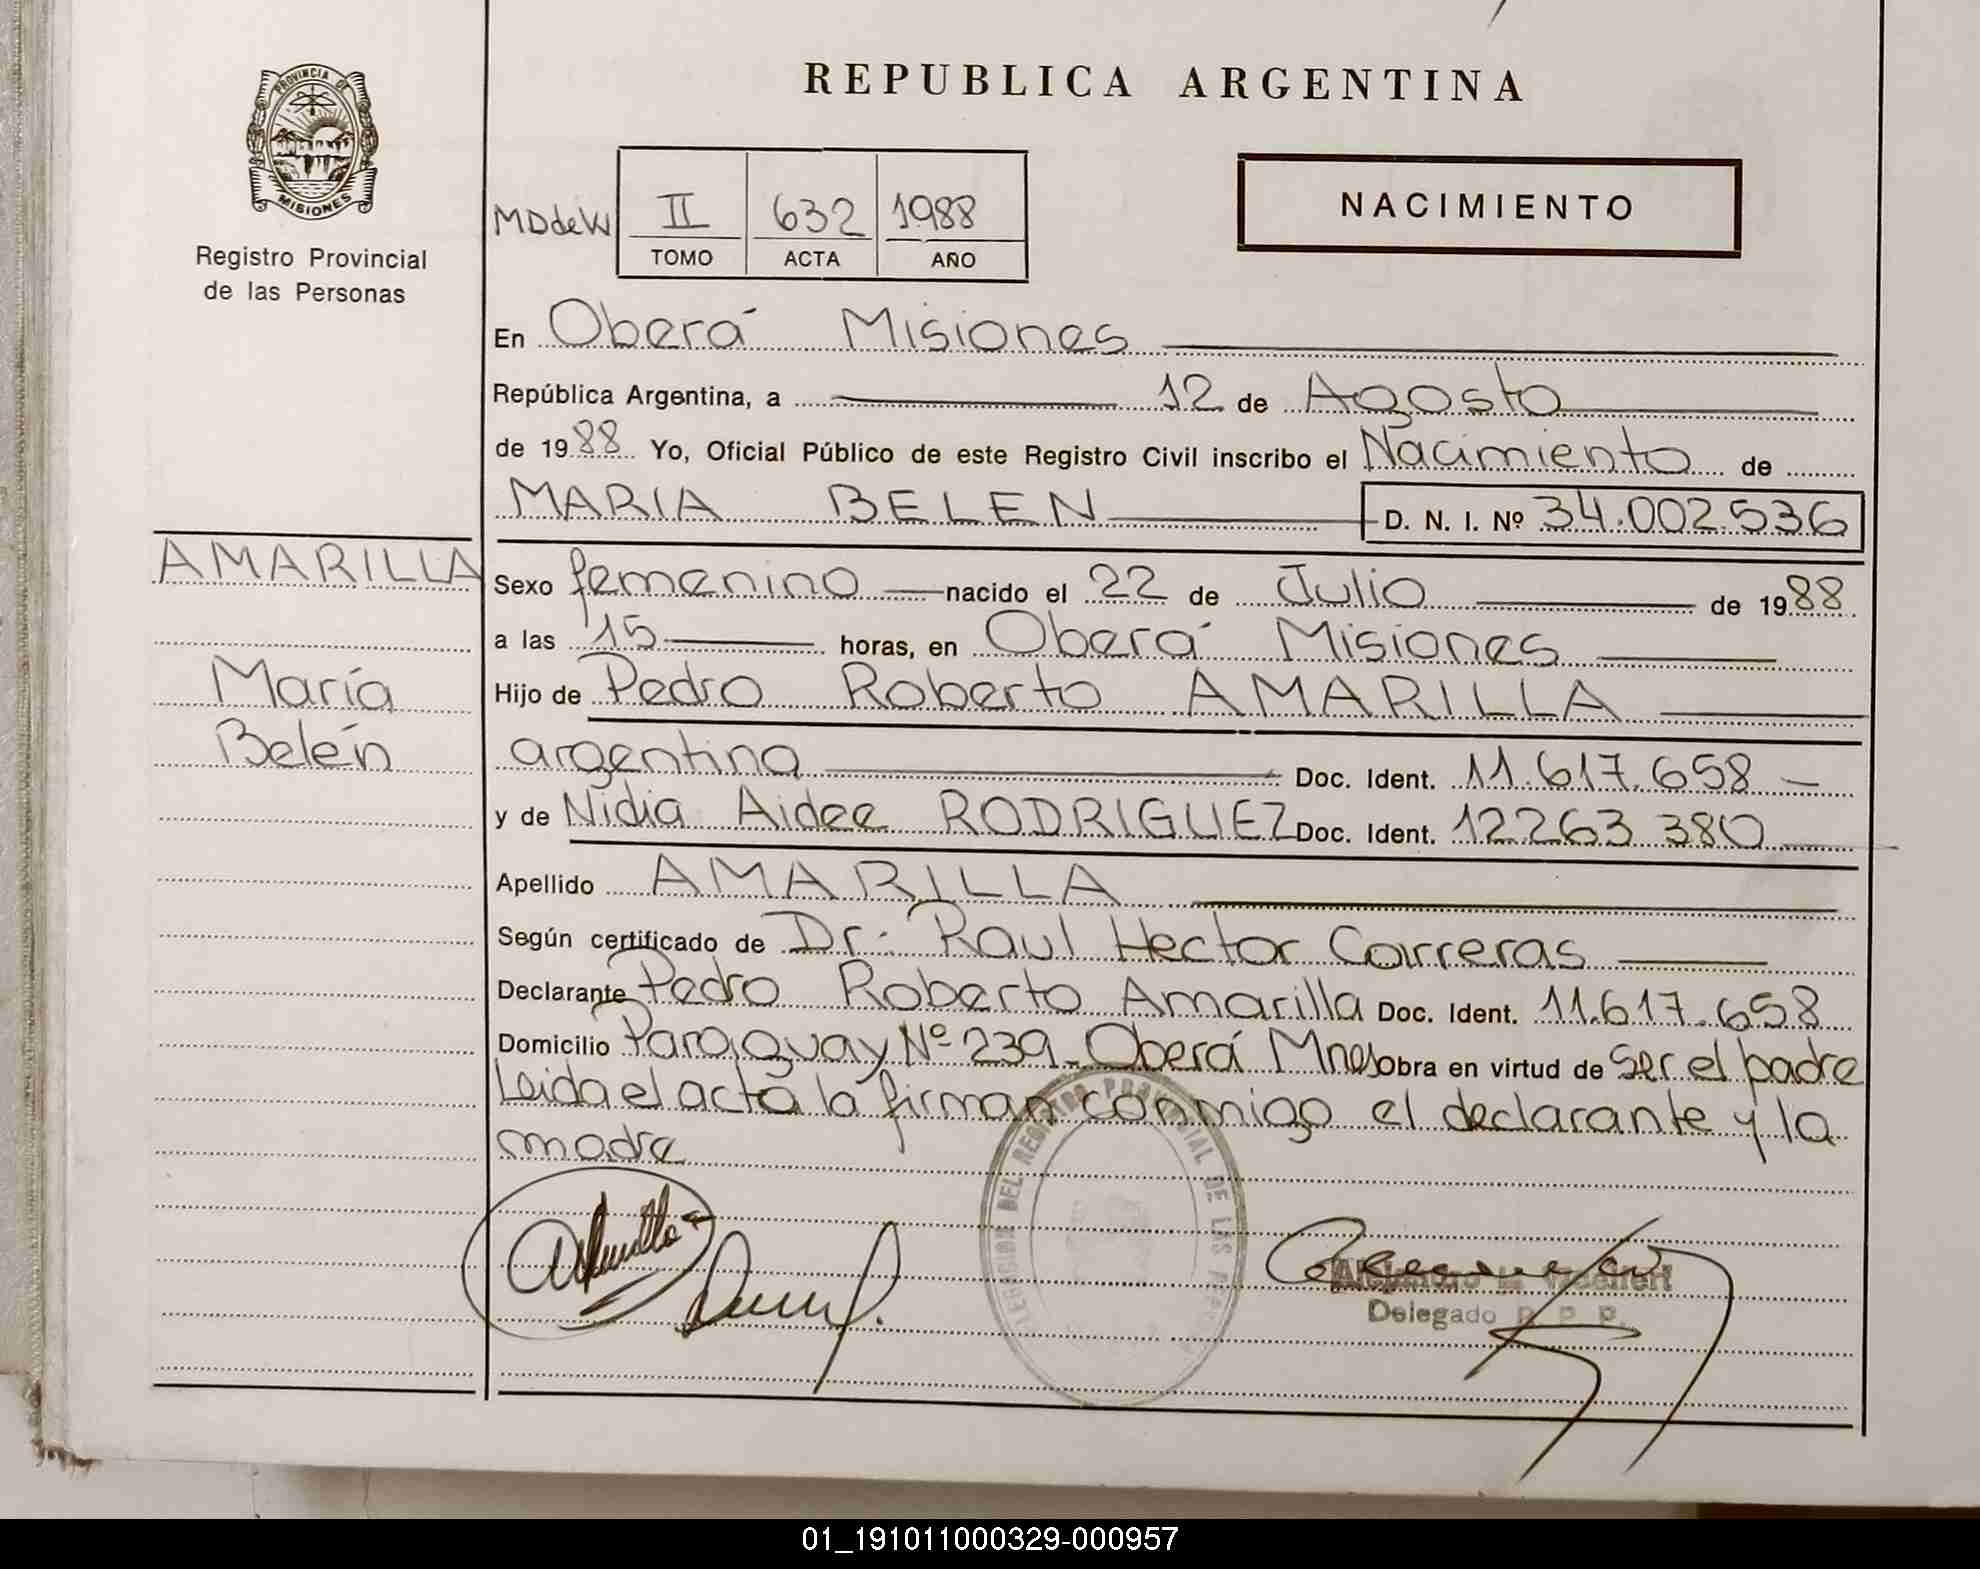 PROVINCIA DE
MISIONES
Registro Provincial
de las Personas
REPUBLICA ARGENTINA
NACIMIENTO
MDdeW II 632 1988
TOMO ACTA AÑO
En Oberá Misiones
República Argentina, a 12 de Agosto
de 1988 Yo, Oficial Público de este Registro Civil inscribo el Nacimiento de
MARIA BELEN D. N. I. Nº 34.002.536
AMARILLA
María
Belén
Sexo femenino nacido el 22 de Julio de 1988
a las 15 horas, en Oberá Misiones
Hijo de Pedro Roberto AMARILLA
argentina Doc. Ident. 11.617.658
y de Nidia Aidee RODRIGUEZ Doc. Ident. 12263.380
Apellido AMARILLA
Según certificado de Dr. Raul Hector Carreras
Declarante Pedro Roberto Amarilla Doc. Ident. 11.617.658
Domicilio Paraguay Nº 239 - Oberá Mnes Obra en virtud de Ser el padre
Leida el acta la firman conmigo el declarante y la
madre
DEL REGISTRO PROVINCIAL DE LAS
Delegado R. P. P.
01_191011000329-000957